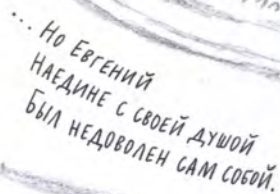 ... Но Евгений
Наедине с своей душой
Был недоволен сам собой.